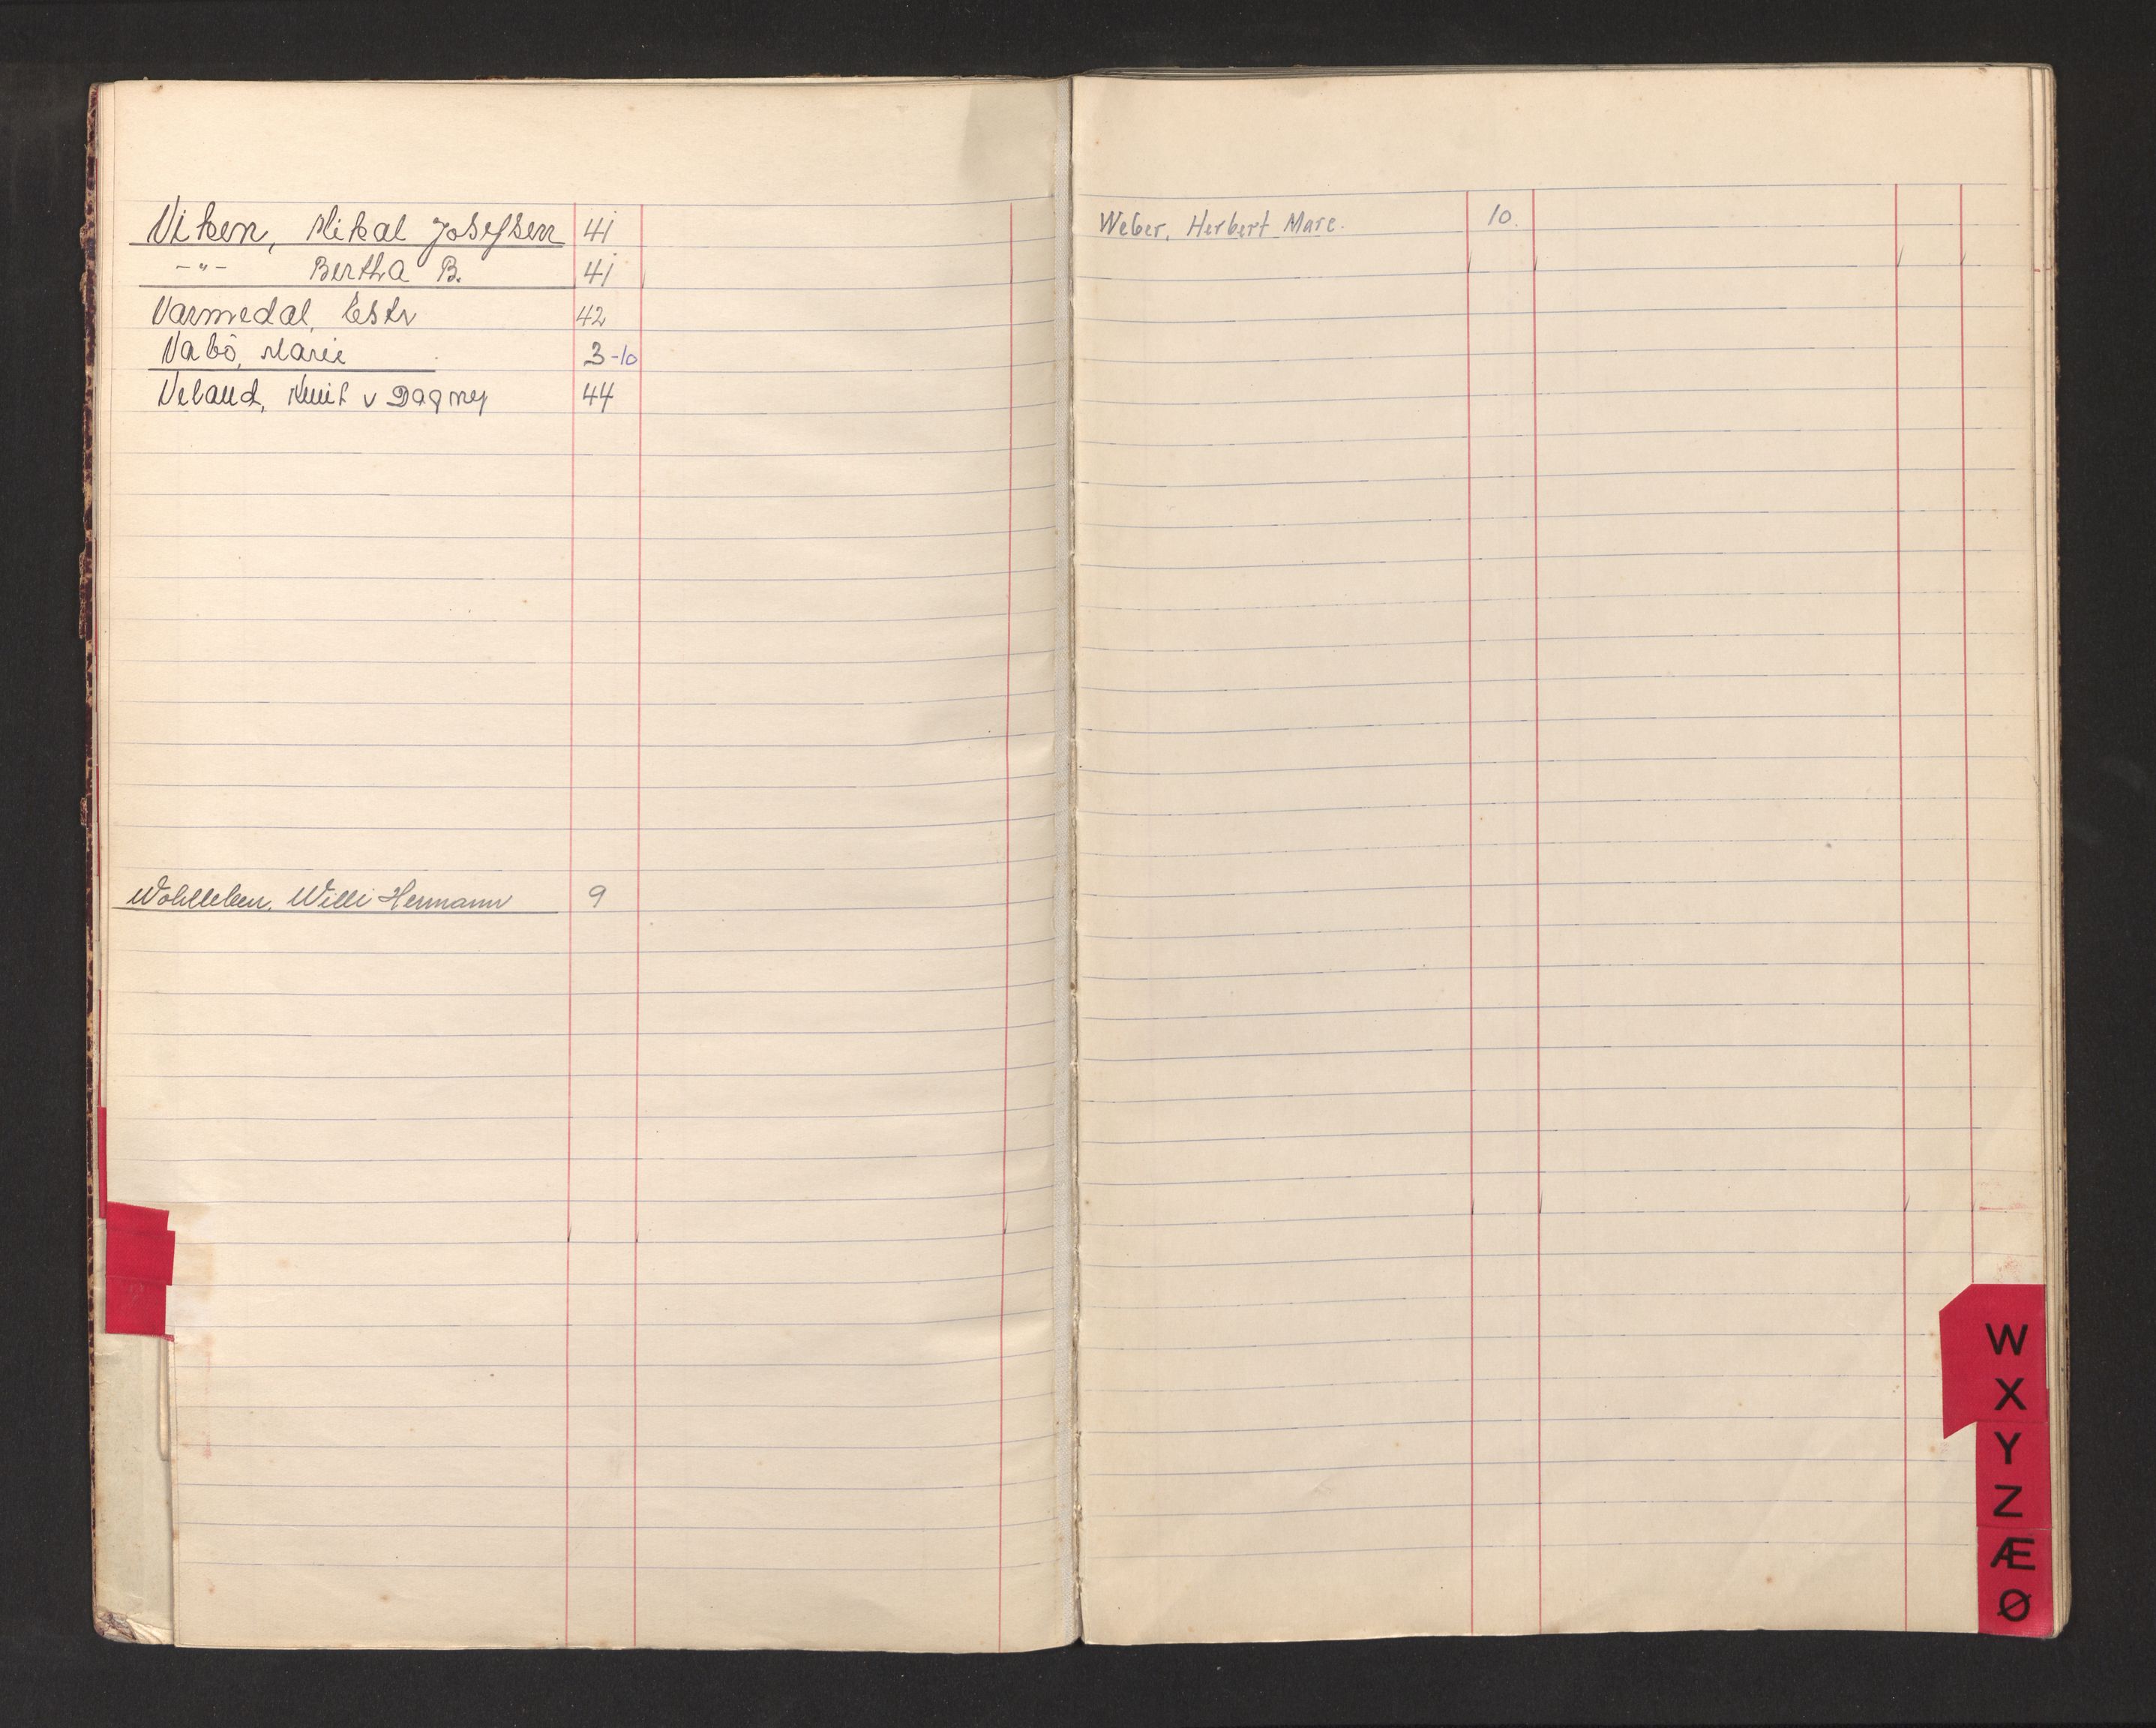 Viken, Mikal Josefsen 41
-"- Bertha B. 41
Varmedal, Estr 42
Vabö, Marie 3-10
Veland, Knut v Dagny 44
Wohlleben, Willi Hermann 9
Weber, Herbert Marc. 10.
W
X
Y
Z
Æ
Ø